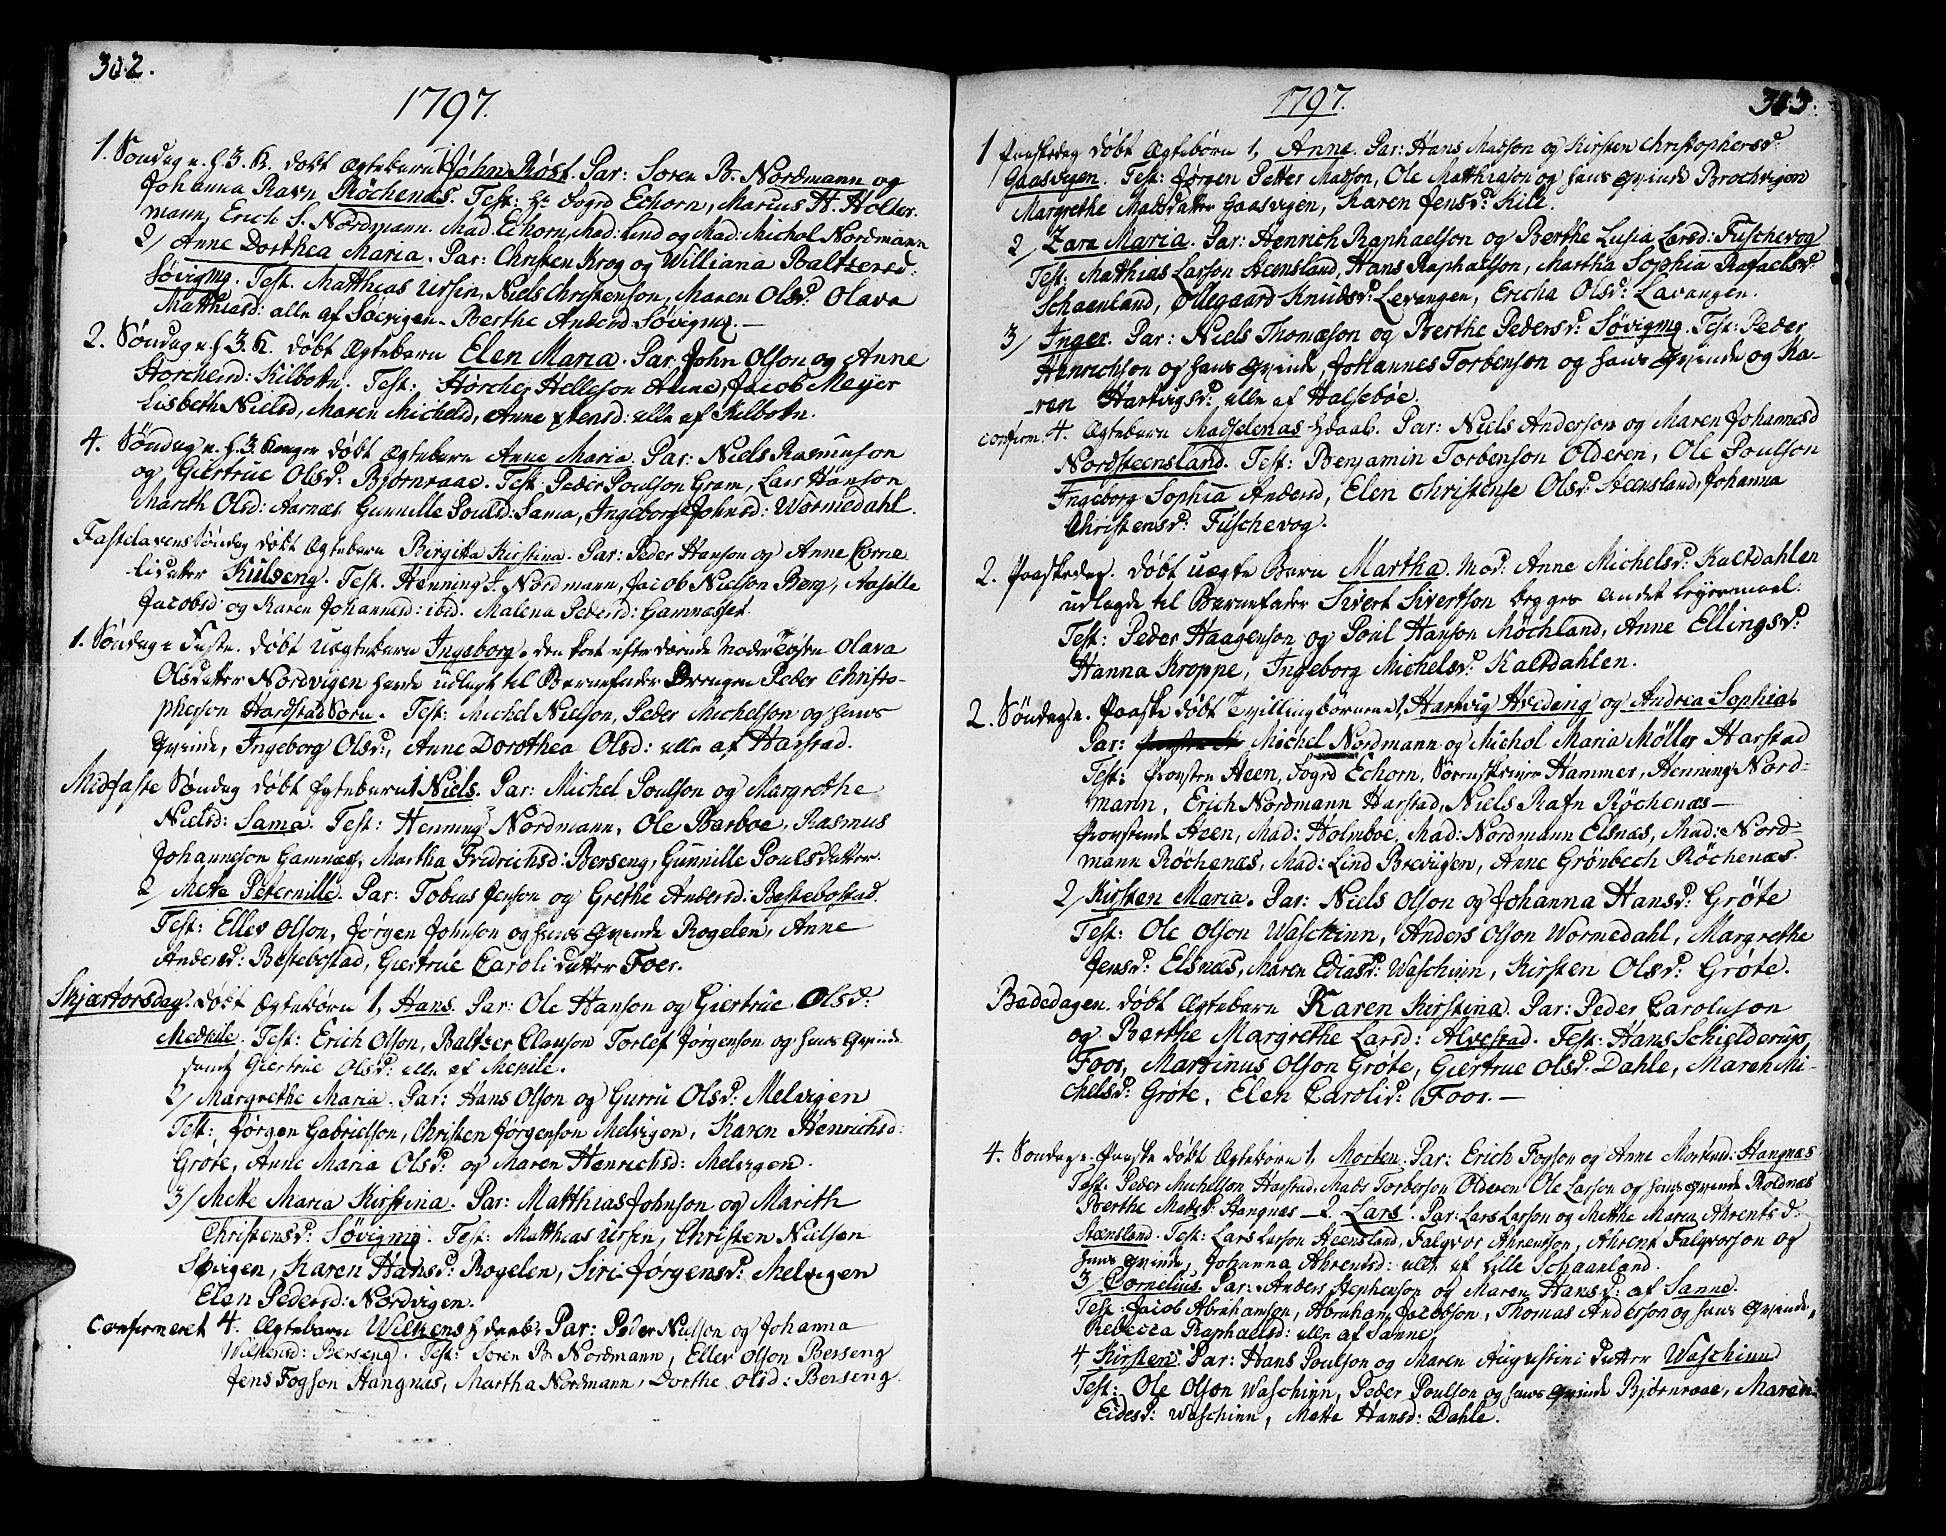 302.
1797.
1. Søndag e. h. 3. K. døbt Ægtebarn 1, John Røst. Par: Søren B. Nordmann og
Johanna Ravn Røchenæs. Test: Hr Sogrd Echorn, Marcus H. Holter-
mann, Erich S. Nordmann. Mad. Echorn, Mad: Lind og Mad: Michol Nordmann
2/ Anne Dorthea Maria. Par: Christen Krog og Williana Baltzersd:
Søvigmq. Test. Matthias Ursin, Niels Christenson, Maren Olsd: Olava
Matthiasd: alle af Søevigen. Berthe Andersd Søvigmq. —
2. Søndag e. h. 3. K. døbt Ægtebarn Elen Maria. Par. John Olson og Anne
Storchersd: Kilbotn. Test: Størcher Helleson Anne, Jacob Meyer
Lisbeth Nielsd, Maren Michelsd, Anne Xtensd: alle af Kilbotn.
4. Søndag e. h. 3. Konger døbt Ægtebarn Anne Maria. Par: Niels Rasmuson
og Giertrue Olsd: Bjørnraae. Test: Peder Poulson Gram, Lars Hanson
Marith Olsd: Aarnæs Gunnille Poulsd: Sama, Ingeborg Johnsd: Wormedahl.
Fastelavens Søndag døbt Ægtebarn Birgita Kirstina. Par: Peder Hanson og Anne Corne
lidatter Kulseng. Test. Henning J. Nordmann, Jacob Nielson Berg, Aaselle
Jacobsd: og Karen Johannesd: ibid. Malena Pedersd: Gamnæsset.
1. Søndag i Faste. døbt Uægtebarn Ingeborg. den kort efter døende Moder Tøsen Olava
Olsdatter Nordvigen havde udlagt til Barnefader Drengen Peder Christo-
pherson Hardstad Sorn. Test: Michel Nielson, Peder Michelson og hans
Qvinde, Ingeborg Olsd:, Anne Dorothea Olsd: alle af Harstad.
Midfaste Søndag døbt Ægtebarn 1 Niels. Par: Michel Poulson og Margrethe
Nielsd: Sama. Test: Henning Nordmann, Ole Barboe, Rasmus
Johanneson Gamnæs, Martha Fridrichsd: Berseng, Gunnille Poulsdatter.
2/ Mete Peternille. Par: Tobias Jenson og Grethe Andersd: Bestebostad.
Test: Eller Olson, Jørgen Johnson og hans Qvinde Rogelen, Anne
Andersd: Bestebostad, Giertrue Carolidatter Foer.
Skjærtorsdag. døbt Ægtebørn 1, Hans. Par: Ole Hanson og Giertrue Olsd:
Medkile. Test: Erich Olson, Baltzer Clauson Torlef Jørgenson og hans Qvinde
samt Giertrue Olsd: alle af Mekile.
2/ Margrethe Maria. Par: Hans Olson og Gurru Olsd: Melvigen
Test: Jørgen Gabrielson, Christen Jørgenson Melvigen, Karen Henrichsd:
Grøte, Anne Maria Olsd: og Maren Henrichsd: Melvigen.
3/ Mette Maria Kirstina. Par: Matthias Johnson og Marith
Christensd: Søvigmq. Test: Matthias Ursin, Christen Nielson
Søvigen, Karen Hansd: Rogelen, Siri Jørgensd: Melvigen
Elen Pedersd: Nordvigen.
Confirmeret 4. Ægtebarn Wilkens Hdaab: Par: Peder Nielson og Johanna
Wilkensd: Berseng. Test: Søren B. Nordmann, Eller Olson Berseng
Jens Fogson Hangnæs, Martha Nordmann, Dorthe Olsd: Berseng.
1797.
303.
1 Paaskedag døbt Ægtebørn 1, Anne. Par: Hans Madson og Kirsten Christophersd:
Gaasvigen. Test: Jørgen Petter Madson, Ole Matthiason og hans Qvinde Brochvigen
Margrethe Madsdatter Gaasvigen, Karen Jensd: Kile.
2/ Zara Maria. Par: Henrich Raphaelson og Berthe Lusia Larsd: Fuschevog
Test: Mathias Larson Steensland, Hans Raphaelson, Martha Sophia Rafaelsd:
Schaanland, Ollegaard Knudsd: Levangen, Ericha Olsd: Lavangen.
3/ Inger. Par: Niels Thomæson og Berthe Pedersd: Søvigmq. Test: Peder
Henrichson og hans Qvinde, Johannes Torbenson og hans Qvinde og Ka-
-ren Hartvigsd: alle af Halsebøe.
confirm: 4. Ægtebarn Madselenas Hdaab. Par: Niels Anderson og Maren Johannesd
Nordsteensland. Test: Benjamin Torbenson Olderen, Ole Poulson
Ingeborg Sophia Andersd, Elen Christense Olsd: Steensland, Johanna
Christensd: Fuschevog.
2. Paaskedag. døbt Uægte Barn Martha. Mod: Anne Michelsd: Kaltdahlen
udlagde til Barnefader Sivert Sivertson begges andet leyermaal.
Test: Peder Haagenson og Poul Hanson Møchland, Anne Ellingsd:
Hanna Kroppe, Ingeborg Michelsd: Kaltdahlen.
2. Søndag e. Paaske døbt Tvillingbørnene 1, Hartvig Hvideng og Andrea Sophia
Par: Michel Nordmann og Michol Maria Møller Harstad
Test: Provsten Heen, Sogrd Echorn, Sørenskriver Hammer, Henning Nord-
mann, Erich Nordmann Harstad, Niels Rafn Røchenæs —
Provstinde Heen, Mad: Holmboe, Mad: Nordmann Elsnæs, Mad: Nord-
mann Røchenæs, Mad: Lind Brevigen, Anne Grønbech Røchenæs.
2/ Kirsten Maria. Par: Niels Olson og Johanna Hansd: Grøte
Test: Ole Olson Waschinn, Anders Olson Wormedahl, Margrethe
Jensd: Elsnæs, Maren Ediasd: Waschinn, Kirsten Olsd: Grøte.
Bededagen. døbt Ægtebarn Karen Kirstina. Par: Peder Caroluson
og Berthe Margrethe Larsd: Alvestad. Test: Hans Schielderup
Foor, Martinus Olson Grøte, Giertrue Olsd: Dahle, Maren Mi-
chelsd: Grøte, Elen Carolid: Foor. —
4. Søndag e. Paaske døbt Ægtebørn 1, Morten. Par: Erich Fogson og Anne Mortensd: Hangnæs
Test: Peder Michelson Harstad, Mads Torberson Olderen Ole Larson og hans Qvinde Roldnæs
Berthe Madsd: Hangnæs — 2 Lars. Par: Lars Larson og Mette Maria Ahrentsd:
Stensland. Test: Lars Larson Steensland, Falqvor Ahrentson, Ahrent Falqvorson og
hans Qvinde, Johanna Ahrentsd: alle af Lille Schaanland.
3/ Cornelius. Par: Anders Stephenson og Maren Hansd: af Sanne.
Test: Jacob Abrahamson, Abraham Jacobson, Thomas Anderson og hans Qvinde,
Rebecca Raphaelsd: alle af Sanne.
4/ Kirsten. Par: Hans Poulson og Maren Augustini Datter Waschinn
Test: Ole Olson Waschinn, Peder Poulson og hans Qvinde Bjørnraae, Maren
Eidesd: Waschinn, Mette Hansd: Dahle.